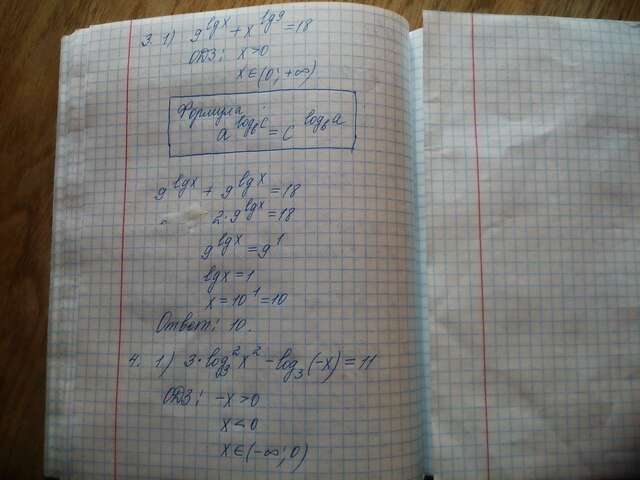 3. 1) 9^lgx + x^lg9 = 18
ОДЗ: x>0
x∈(0; +∞)
Формула:
a^log_b c = c^log_b a
9^lgx + 9^lgx = 18
2·9^lgx = 18
9^lgx = 9^1
lgx = 1
x = 10^1 = 10
Ответ: 10.
4. 1) 3·log_3^2 x^2 - log_3(-x) = 11
ОДЗ: -x>0
x<0
x∈(-∞; 0)